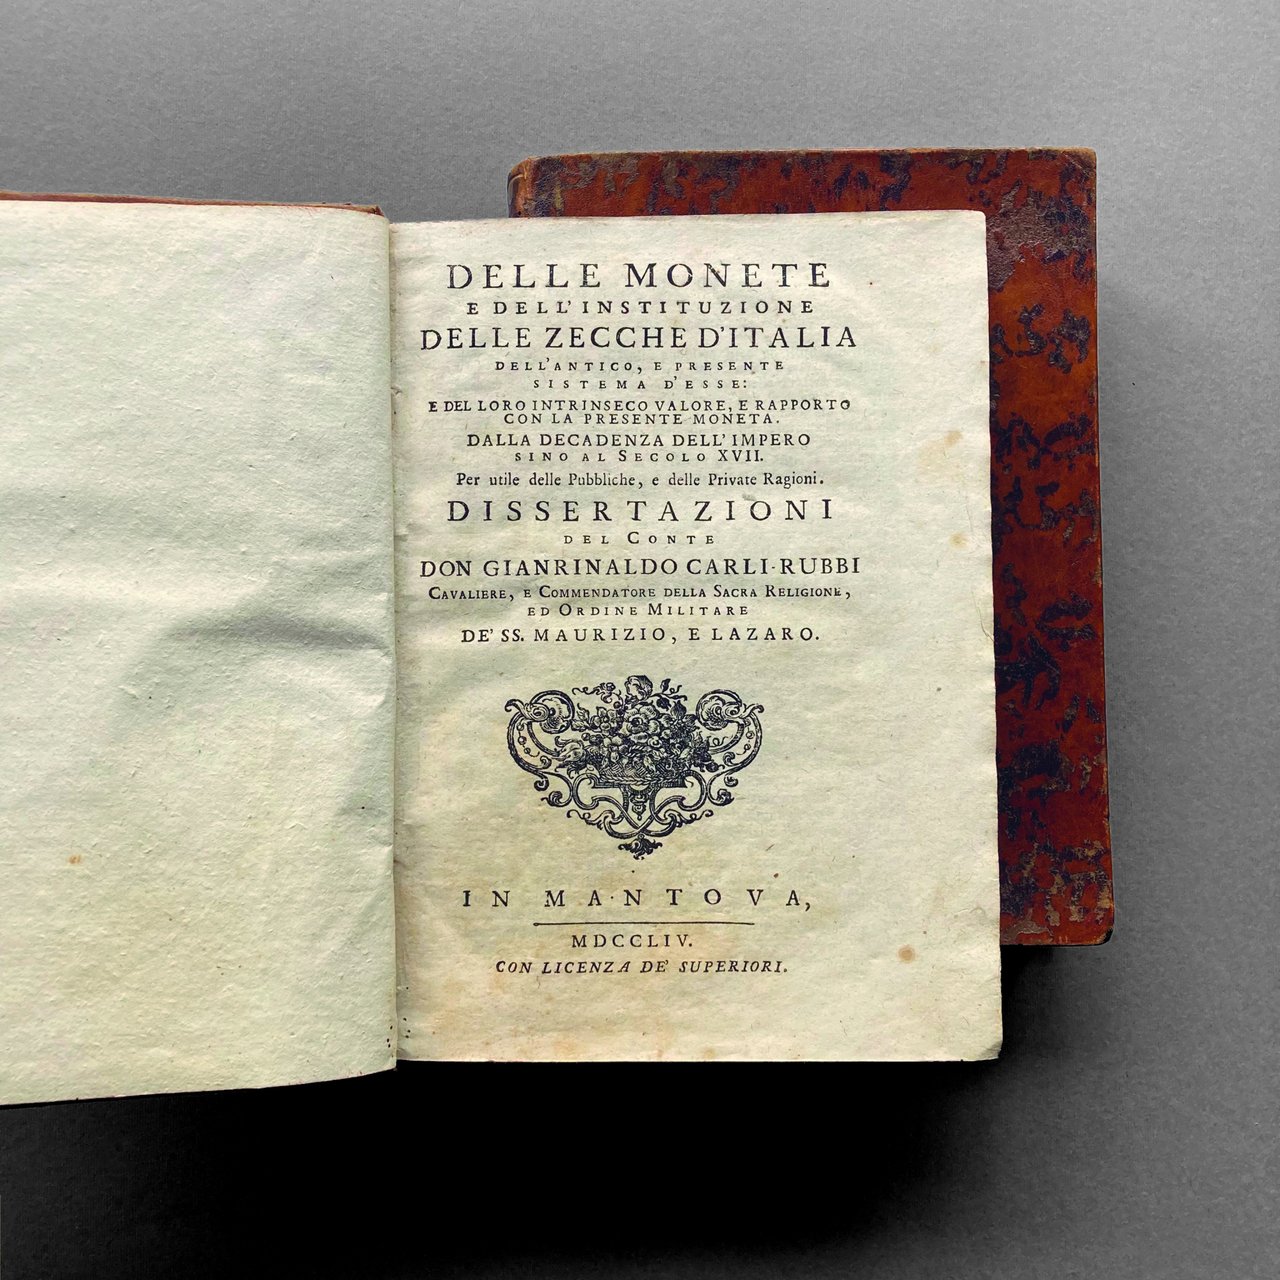 DELLE MONETE
E DELL'INSTITUZIONE
DELLE ZECCHE D'ITALIA
DELL'ANTICO, E PRESENTE
SISTEMA D'ESSE:
E DEL LORO INTRINSECO VALORE, E RAPPORTO
CON LA PRESENTE MONETA.
DALLA DECADENZA DELL'IMPERO
SINO AL SECOLO XVII.
Per utile delle Pubbliche, e delle Private Ragioni.
DISSERTAZIONI
DEL CONTE
DON GIANRINALDO CARLI-RUBBI
CAVALIERE, E COMMENDATORE DELLA SACRA RELIGIONE,
ED ORDINE MILITARE
DE' SS. MAURIZIO, E LAZARO.
IN MANTOVA,
MDCCLIV.
CON LICENZA DE' SUPERIORI.